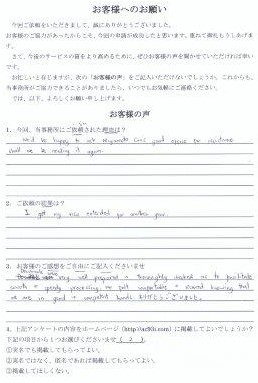 お客様へのお願い
今回ご依頼をいただきまして、誠にありがとうございました。
お客様のご協力があったからこそ、今回の申請が成功したと思います。重ねて御礼もうしあげます。
さて、今後のサービスの質をより高めるために、ぜひお客様の声を聞かせていただければ幸いです。
お忙しいと存じますが、次の「お客様の声」をご記入いただけないでしょうか。これからも、
当事務所がご協力できることがありましたら、いつでもお気軽にご連絡ください。
では、以下、よろしくお願い申し上げます。
お客様の声
1. 今回、当事務所にご依頼された理由は?
be happy to
good
assistance
shall be needing it again.
2. ご依頼の結果は?
I got my visa extended for another year.
3. お客様のご感想をご自由にご記入くださいませ
very well prepared + thoroughly
me to facilitate
smooth + speedy processing.
knowing that
we are in good + competent hands. ありがとうございました。
4. 上記アンケートの内容をホームページ
に掲載してよいでしょうか?
下記の項目から1つお選びくださいませ( 2 ).
①実名でも掲載してもらってよい。
②実名ではなく、匿名であれば掲載してもらってよい。
③掲載してほしくない。